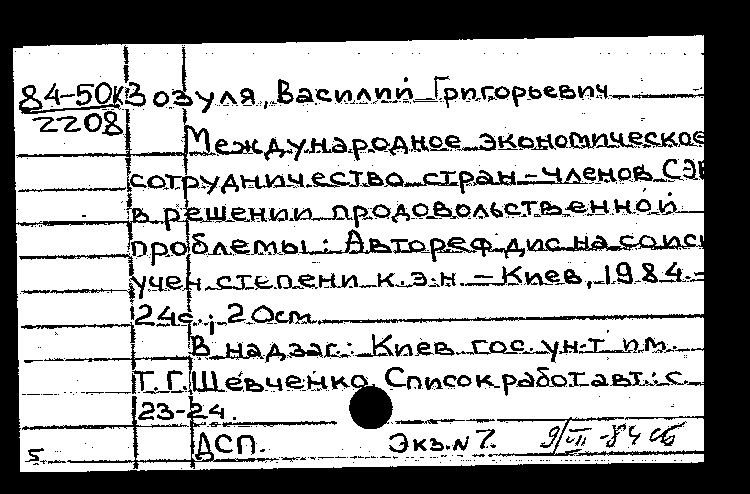 84-50К Зозуля, Василий Григорьевич
2208
Международное экономическое
сотрудничество стран-членов СЭВ
в решении продовольственной
проблемы: Автореф.дис.на соиск
учен.степени к.э.н. – Киев, 1984.–
24с.; 20см
В надзаг.: Киев гос. ун-т им.
Т.Г.Шевченко. Список работ авт.: с.
23-24.
ДСП. Экз.N 7. 9/VII-84 сб
5